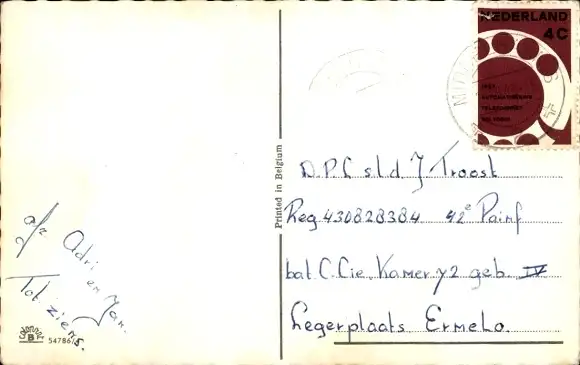 NEDERLAND
4C
D.P.C sld J Troost
Reg 430828384 42e Painf
bat C. Cie, Kamer 72 geb. IV
Legerplaats Ermelo.
Printed in Belgium
a/z Adri
en Jan.
Tot ziens.
54786